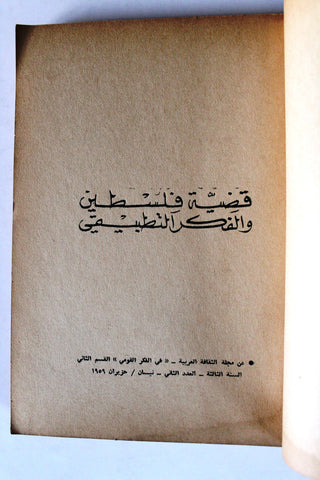 قضيّة فلسطين
والفكر التطبيقي
● عن مجلة الثقافة العربية ــ « في الفكر القومي » القسم الثاني
السنة الثالثة ــ العدد الثاني ــ نيسان / حزيران ١٩٥٩